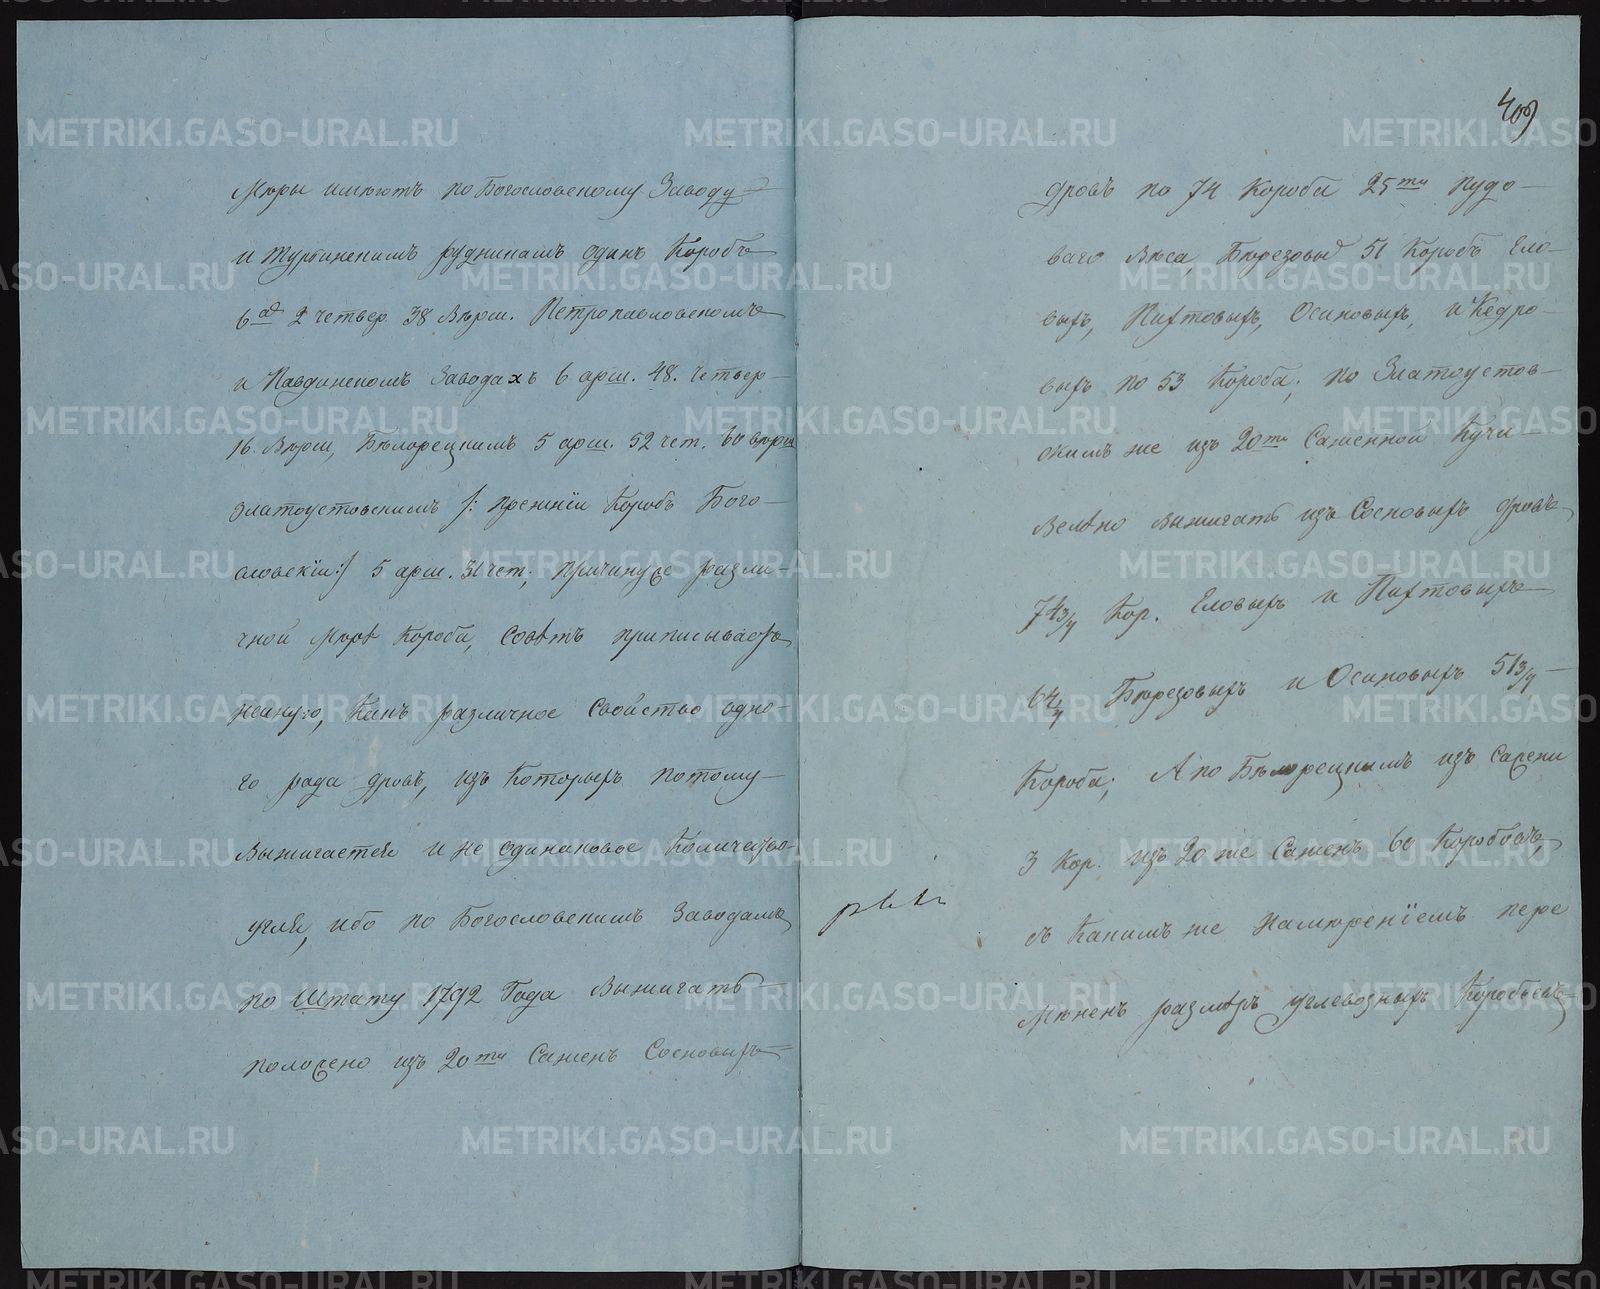 Меры имеютъ по Богословскому Заводу
и Турьинскимъ рудникамъ одинъ Коробъ
6 ад 2 четвер. 38 верш. Петропавловскомъ
и Павдинскомъ Заводахъ 6 арш. 48. четвер
16. верш, Белорецкимъ 5 арш. 52 чет. 60 верш
Златоустовскимъ /: прежнiи Коробъ Бого-
словскiи :/ 5 арш. 31 чет; причину се разли-
чной мере Короба, Советъ приписываетъ
не иную, Какъ различное свойство одно-
го рода дровъ, изъ Которыхъ потому
выжигается и не одинаковое Количество
угля, ибо по Богословскимъ Заводамъ
по Штату 1792 Года выжигать
положено изъ 20ти Саженъ Сосновыхъ
409
дровъ по 74 Короба 25ти пудо-
ваго веса, Березовы 51 Коробъ Ело-
выхъ, Пихтовыхъ, Осиновыхъ, и Кедро-
выхъ по 53 Короба; по Златоустов-
скимъ же изъ 20ти Саженной Кучи
велено выжигать изъ Сосновыхъ дровъ
74 3/4 Кор. Еловыхъ и Пихтовыхъ
64 Березовыхъ и Осиновыхъ 51 3/4
Короба; А по Белорецкимъ изъ Сажени
3 Кор. изъ 20 же Саженъ 60 Коробовъ,
съ Какимъ же намеренiемъ пере
мененъ размеръ углевозныхъ Коробьевъ
METRIKI.GASO-URAL.RU